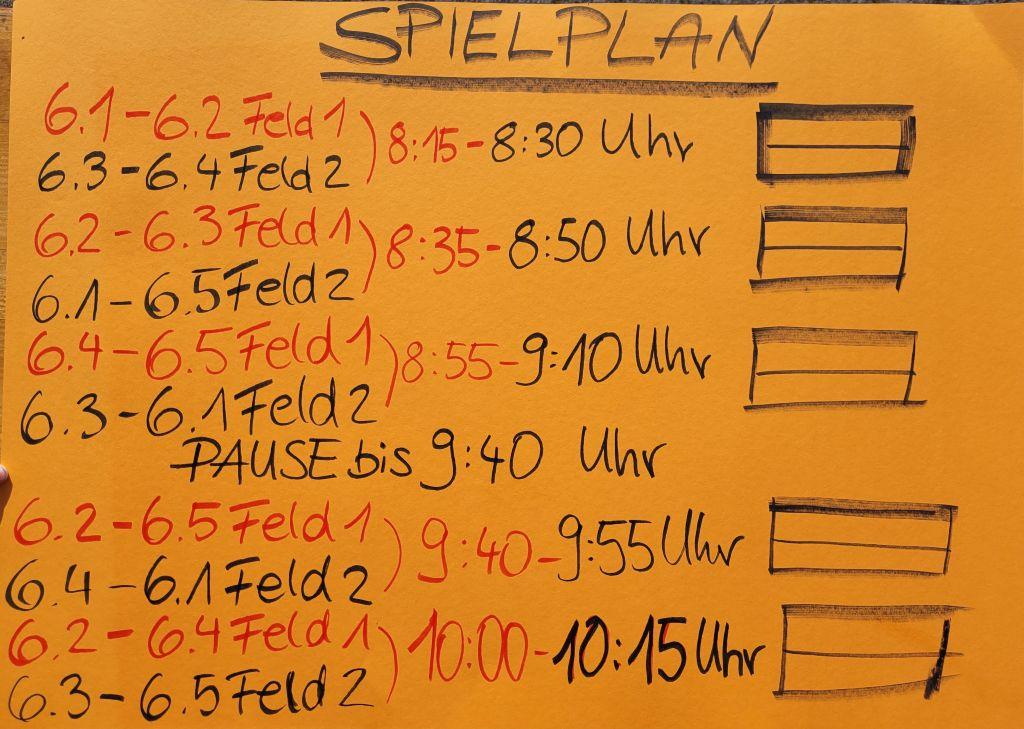 SPIELPLAN
6.1-6.2 Feld 1
6.3-6.4 Feld 2
) 8:15-8:30 Uhr
6.2-6.3 Feld 1
6.1-6.5 Feld 2
) 8:35-8:50 Uhr
6.4-6.5 Feld 1
6.3-6.1 Feld 2
) 8:55-9:10 Uhr
PAUSE bis 9:40 Uhr
6.2-6.5 Feld 1
6.4-6.1 Feld 2
) 9:40-9:55 Uhr
6.2-6.4 Feld 1
6.3-6.5 Feld 2
) 10:00-10:15 Uhr